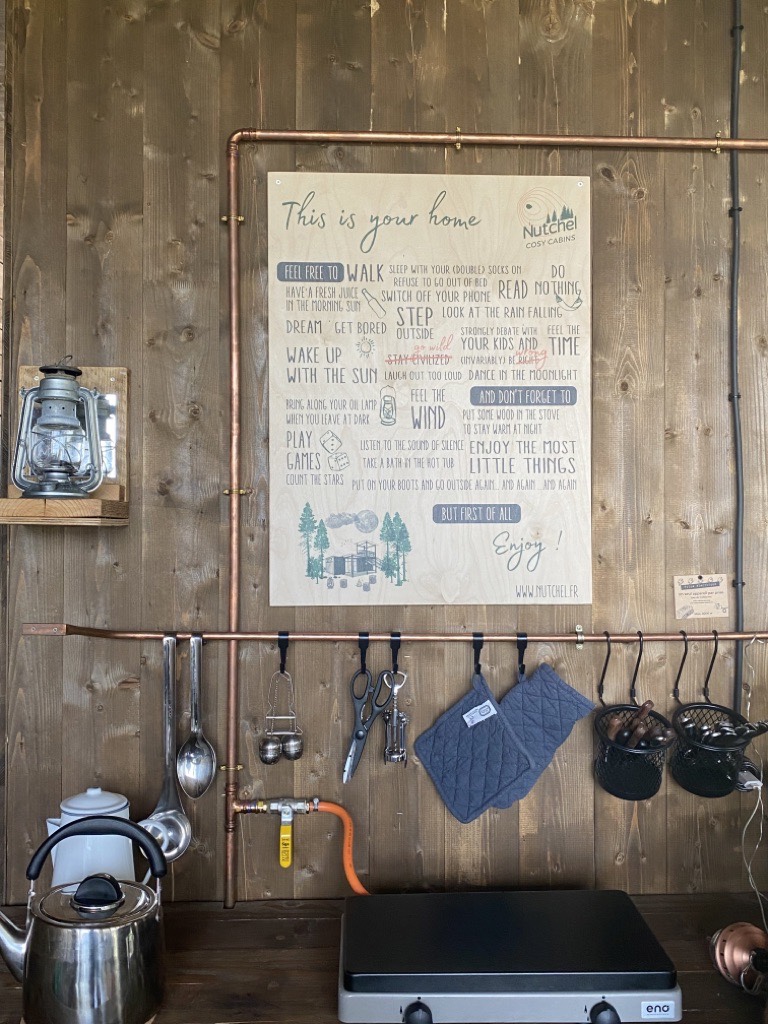 This is your home
Nutchel
COSY CABINS
FEEL FREE TO WALK SLEEP WITH YOUR (DOUBLE) SOCKS ON
REFUSE TO GO OUT OF BED
DO
NOTHING
HAVE A FRESH JUICE
IN THE MORNING SUN
SWITCH OFF YOUR PHONE READ
DREAM GET BORED STEP
OUTSIDE
LOOK AT THE RAIN FALLING
STRONGLY DEBATE WITH
YOUR KIDS AND
UNVARIABLY BE RIGHT
wrong
FEEL THE
TIME
WAKE UP
WITH THE SUN
go wild
STAY CIVILIZED
LAUGH OUT TOO LOUD DANCE IN THE MOONLIGHT
BRING ALONG YOUR OIL LAMP
WHEN YOU LEAVE AT DARK
FEEL THE
WIND
AND DON'T FORGET TO
PUT SOME WOOD IN THE STOVE
TO STAY WARM AT NIGHT
PLAY
GAMES
LISTEN TO THE SOUND OF SILENCE
TAKE A BATH IN THE HOT TUB
ENJOY THE MOST
LITTLE THINGS
COUNT THE STARS PUT ON YOUR BOOTS AND GO OUTSIDE AGAIN... AND AGAIN ...AND AGAIN
BUT FIRST OF ALL
Enjoy !
WWW.NUTCHEL.FR
eno